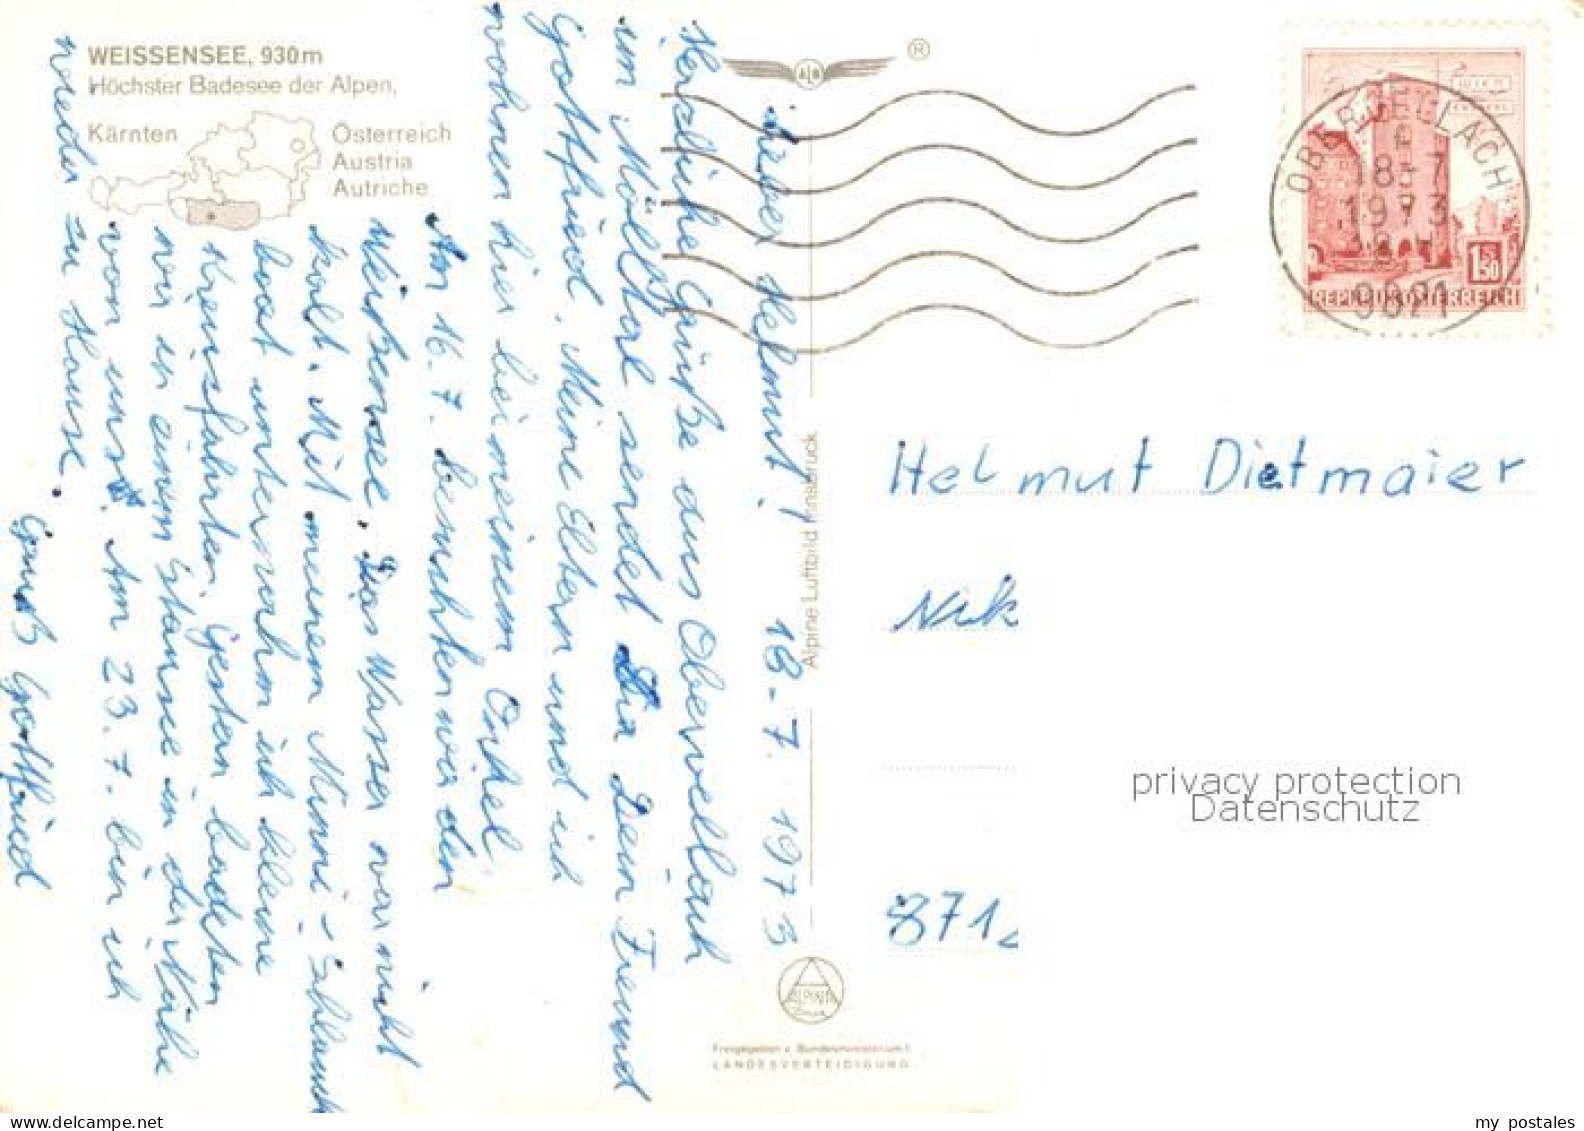 WEISSENSEE, 930m
Höchster Badesee der Alpen,
Kärnten
Österreich
Austria
Autriche
®
OBERVELLACH
18-7
1973
9821
WIEN
1.50
REPUBLIK ÖSTERREICH
Lieber Helmut! 18-7. 1973
Herzliche Grüße aus Obervellach
im Mölltal sendet Dir Dein Freund
Gottfried. Meine Eltern und ich
wohnen hier bei meinem Onkel.
Am 16.7. besuchten wir den
Weißensee. Das Wasser war nicht
kalt. Mit meinem Mini-Schlauch
boot unternahm ich kleine
Kreuzfahrten. Gestern badeten
wir in einem Stausee in der Nähe
von uns. Am 23.7. bin ich
wieder zu Hause.
Gruß Gottfried
Alpine Luftbild Innsbruck
Helmut Dietmaier
871
privacy protection
Datenschutz
ALPINA
Freigegeben v. Bundesministerium f.
LANDESVERTEIDIGUNG
my postales